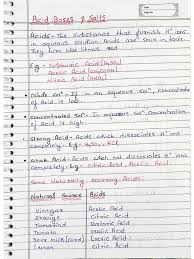 Acid Bases & Salts
Acids - The substance that furnish H+ ions
in aqueous solution. Acids are sour in taste.
They turn blue litmus red.
Eg - Sulphuric Acid (H2SO4)
Acetic Acid (CH3COOH)
Nitric Acid (HNO3)
Dilute Sol" - If in Sol", concentration
of Acid is low.
Concentrated Sol" - In Aqueous Sol" Concentration
of Acid is high.
Strong Acid - Acids which dissociates H+ ions
completely. Eg - H2SO4, HCl
Weak Acid - Acids which not dissociates H+ ions
completely. Eg - Citric Acid
Some Naturally Occuring Acids:
Natural Source Acids
Vinegar Acetic Acid
Orange Citric Acid
Tamarind Tartaric Acid
Tomato Oxalic Acid
Sour milk (Curd) Lactic Acid
Lemon Citric Acid